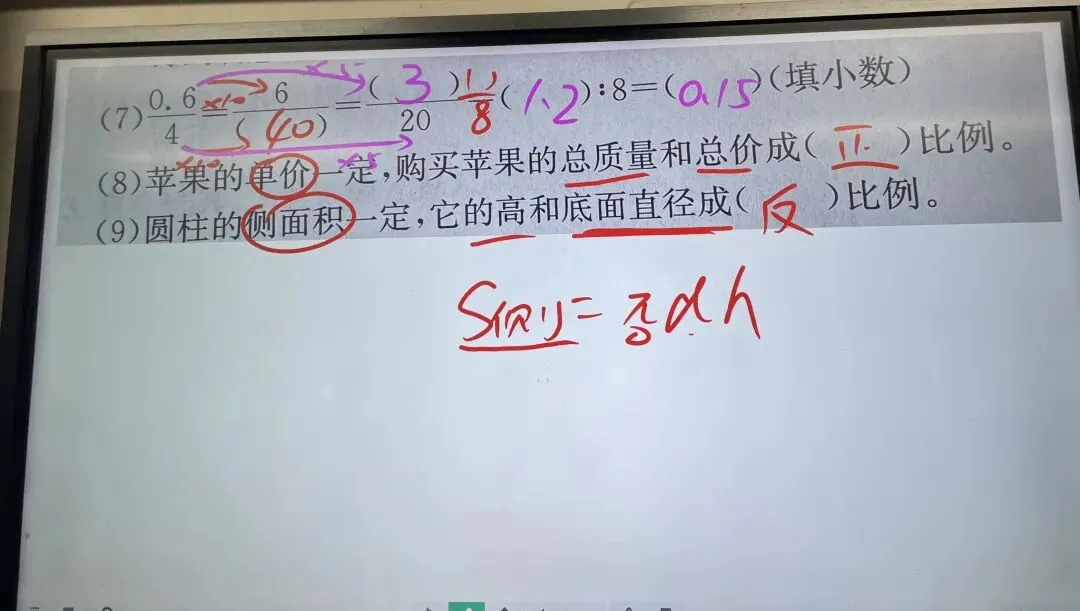 ×5
(7) 0.6/4 = 6/(40) = (3)/20 (1.2):8=(0.15)(填小数)
×10
8
×10 ×5
(8)苹果的单价一定,购买苹果的总质量和总价成(正)比例。
(9)圆柱的侧面积一定,它的高和底面直径成(反)比例。
S侧=πdh